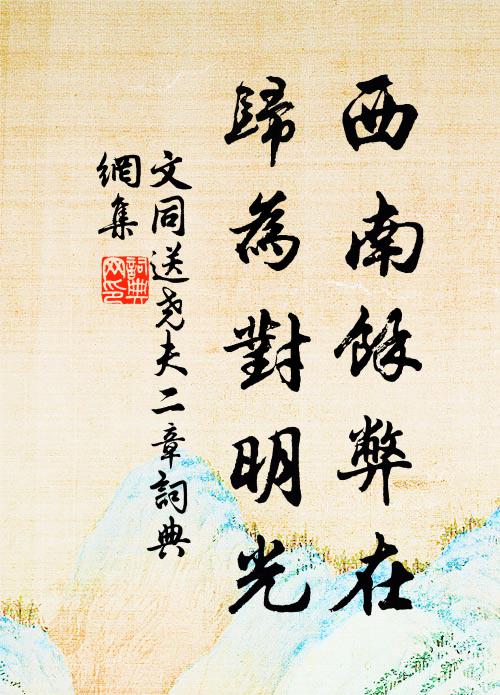 西南餘弊在
歸為對明光
文同送尧夫二章詞典
網集
詞典網印